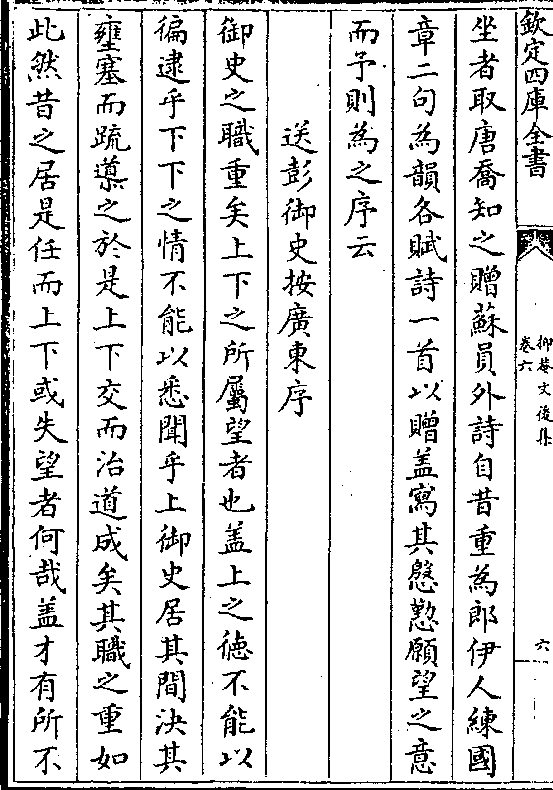 欽定四庫全書
抑菴文後集
卷六
六
坐者取唐喬知之贈蘇員外詩自昔重為郎伊人練國
章二句為韻各賦詩一首以贈盖寫其慇懃願望之意
而予則為之序云
送彭御史按廣東序
御史之職重矣上下之所屬望者也盖上之徳不能以
徧逮乎下下之情不能以悉聞乎上御史居其間決其
壅塞而䟽𨗿之於是上下交而治道成矣其職之重如
此然昔之居是任而上下或失望者何哉盖才有所不